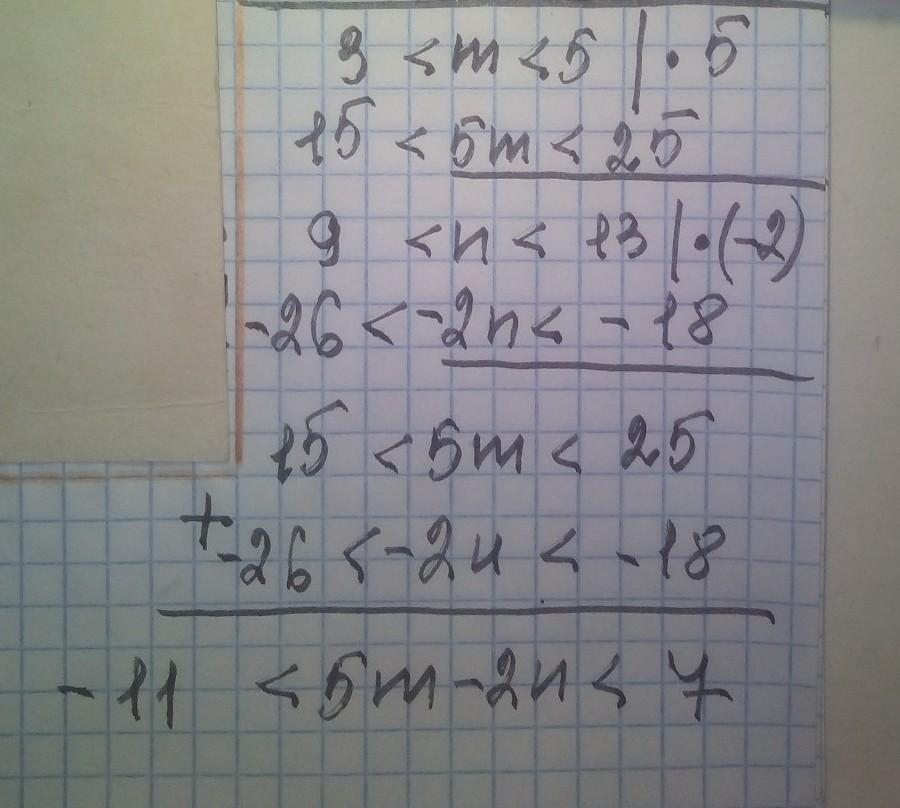 3 < m < 5 | · 5
15 < 5m < 25
9 < n < 13 | · (-2)
-26 < -2n < -18
15 < 5m < 25
+
-26 < -2n < -18
-11 < 5m - 2n < 7